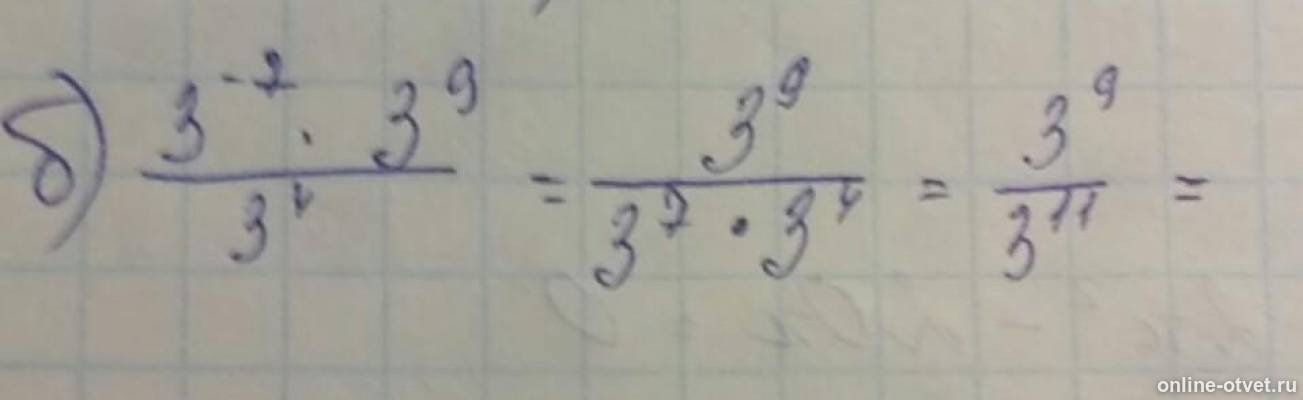 б) \frac{3^{-7} \cdot 3^9}{3^4} = \frac{3^9}{3^7 \cdot 3^4} = \frac{3^9}{3^{11}} =
online-otvet.ru